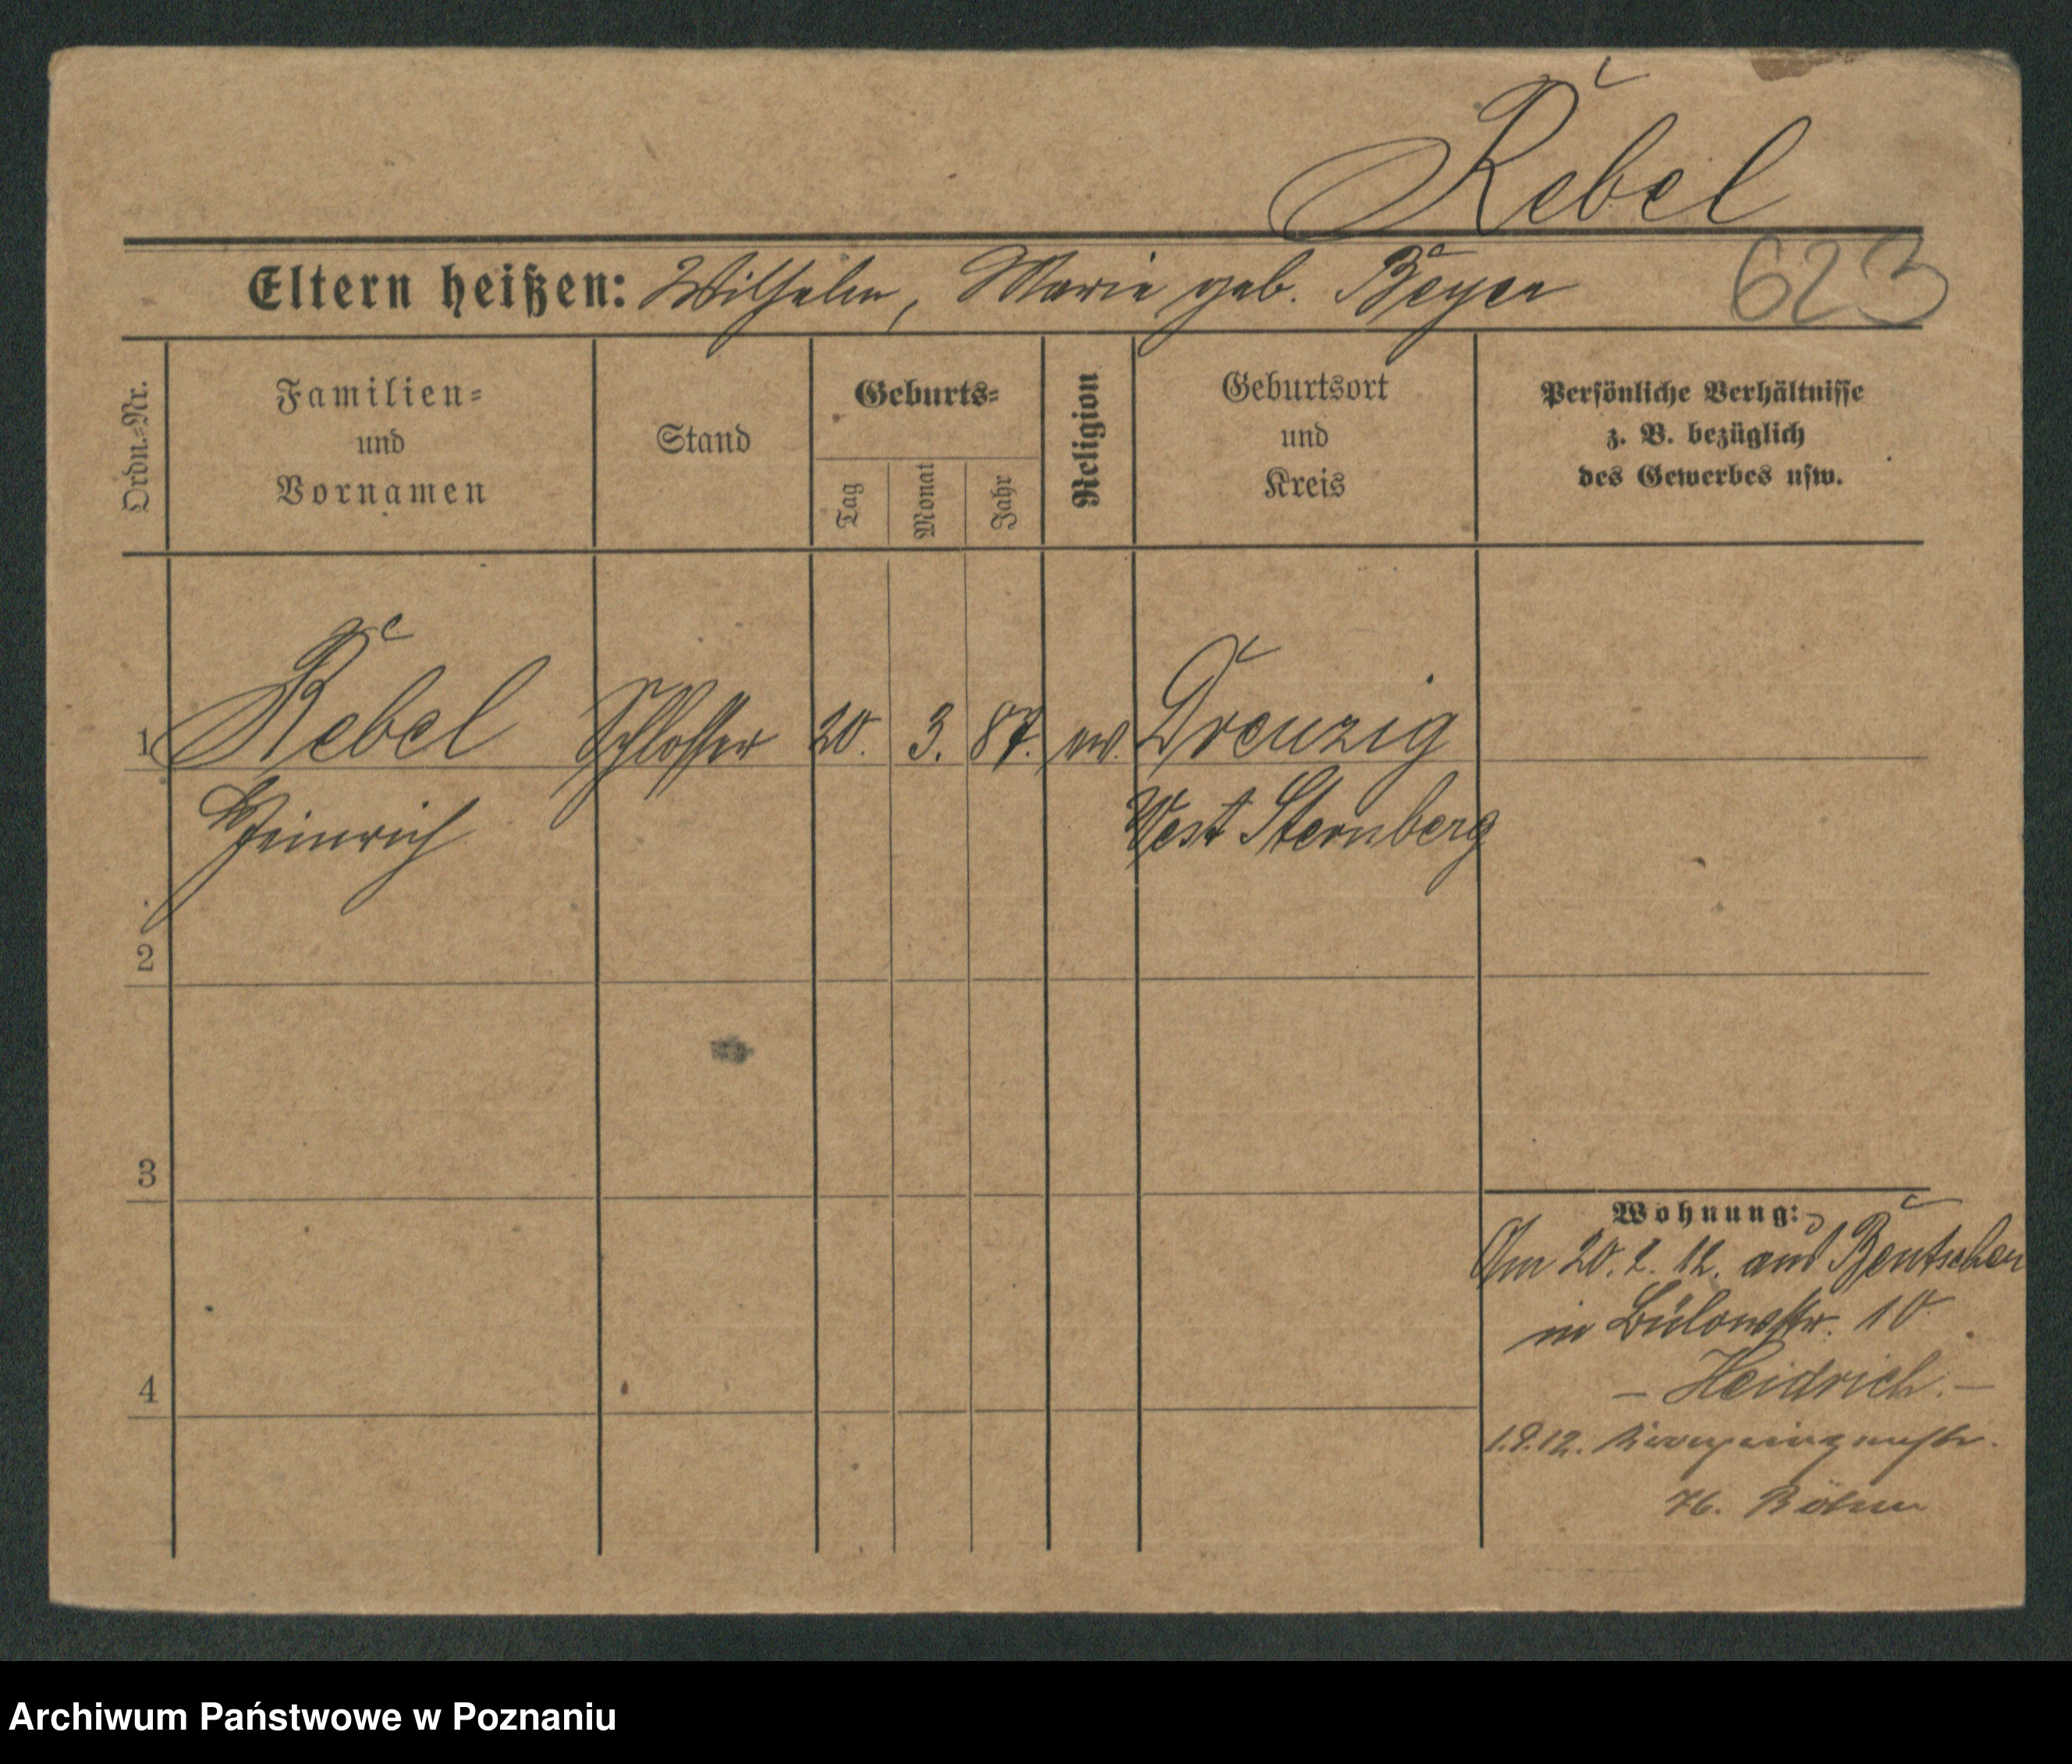 Rebel
Eltern heißen: Wilhelm, Marie geb. Beyer
623
Ordn.-Nr.
Familien-
und
Vornamen
Stand
Geburts-
Tag
Monat
Jahr
Religion
Geburtsort
und
Kreis
Persönliche Verhältnisse
z. B. bezüglich
des Gewerbes usw.
1 Rebel Schlosser 20. 3. 87. ev. Drenzig
Heinrich West Sternberg
2
3
4
Wohnung:
Am 20. 2. 12. aus Bentschen
in Bülowstr. 10
– Heidrich. –
1.9.12.
H. Böhm
Archiwum Państwowe w Poznaniu